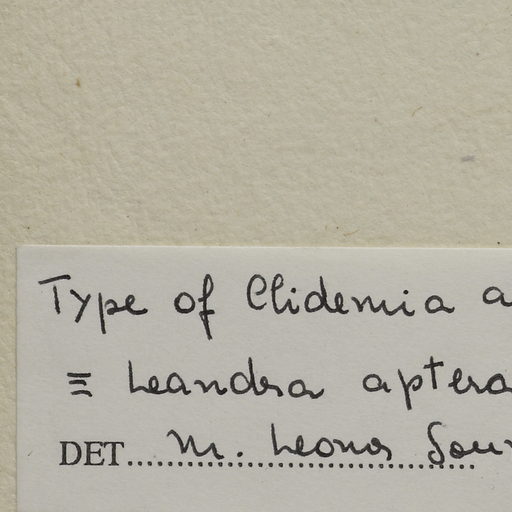 Type of Clidemia a
≡ Leandra aptera
DET. M. Leonor Sou